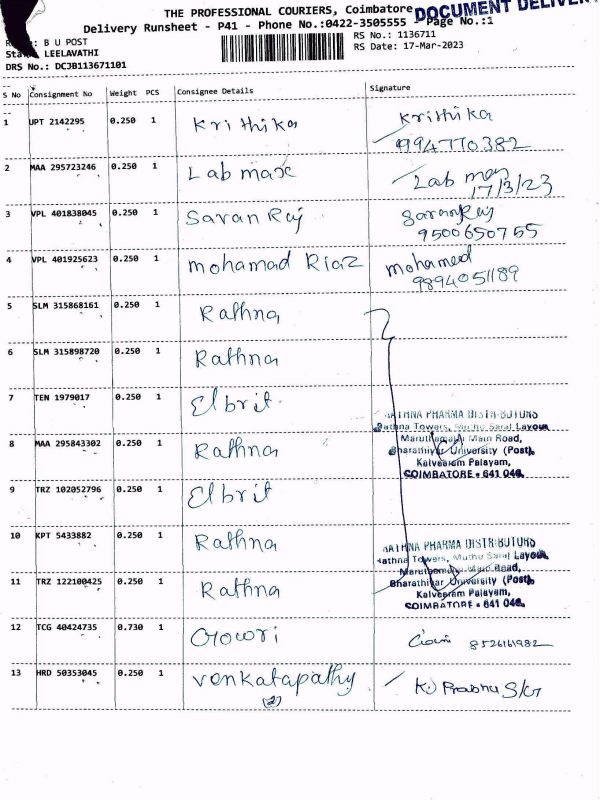 THE PROFESSIONAL COURIERS, Coimbatore
DOCUMENT DELIVER
Delivery Runsheet - P41 - Phone No.:0422-3505555 Page No.:1
: B U POST
RS No.: 1136711
LEELAVATHI
RS Date: 17-Mar-2023
DRS No.: DCJB113671101
S No Consignment No Weight PCS Consignee Details Signature
1 UPT 2142295 0.250 1 Krithika Krithika
9947710382
2 MAA 295723246 0.250 1 Lab max Lab
17/3/23
3 VPL 401838045 0.250 1 Saran Raj SaranRaj
9500650755
4 VPL 401925623 0.250 1 mohamad Riaz mohamed
9894051189
5 SLM 315868161 0.250 1 Rathna
6 SLM 315898720 0.250 1 Rathna
7 TEN 1979017 0.250 1 Elbrit
RATHNA PHARMA DISTRIBUTORS
Rathna Towers, Muthu Saral Layout,
8 MAA 295843302 0.250 1 Rathna Maruthamalai Main Road,
Bharathiyar University (Post),
Kalveeram Palayam,
COIMBATORE - 641 046.
9 TRZ 102052796 0.250 1 Elbrit
10 KPT 5433882 0.250 1 Rathna
RATHNA PHARMA DISTRIBUTORS
Rathna Towers, Muthu Saral Layout,
Maruthamalai Main Road,
11 TRZ 122100425 0.250 1 Rathna Bharathiyar University (Post),
Kalveeram Palayam,
COIMBATORE - 641 046.
12 TCG 40424735 0.730 1 Gowri 8526161982
13 HRD 50353045 0.250 1 Venkatapathy K. Prabhu
(2)